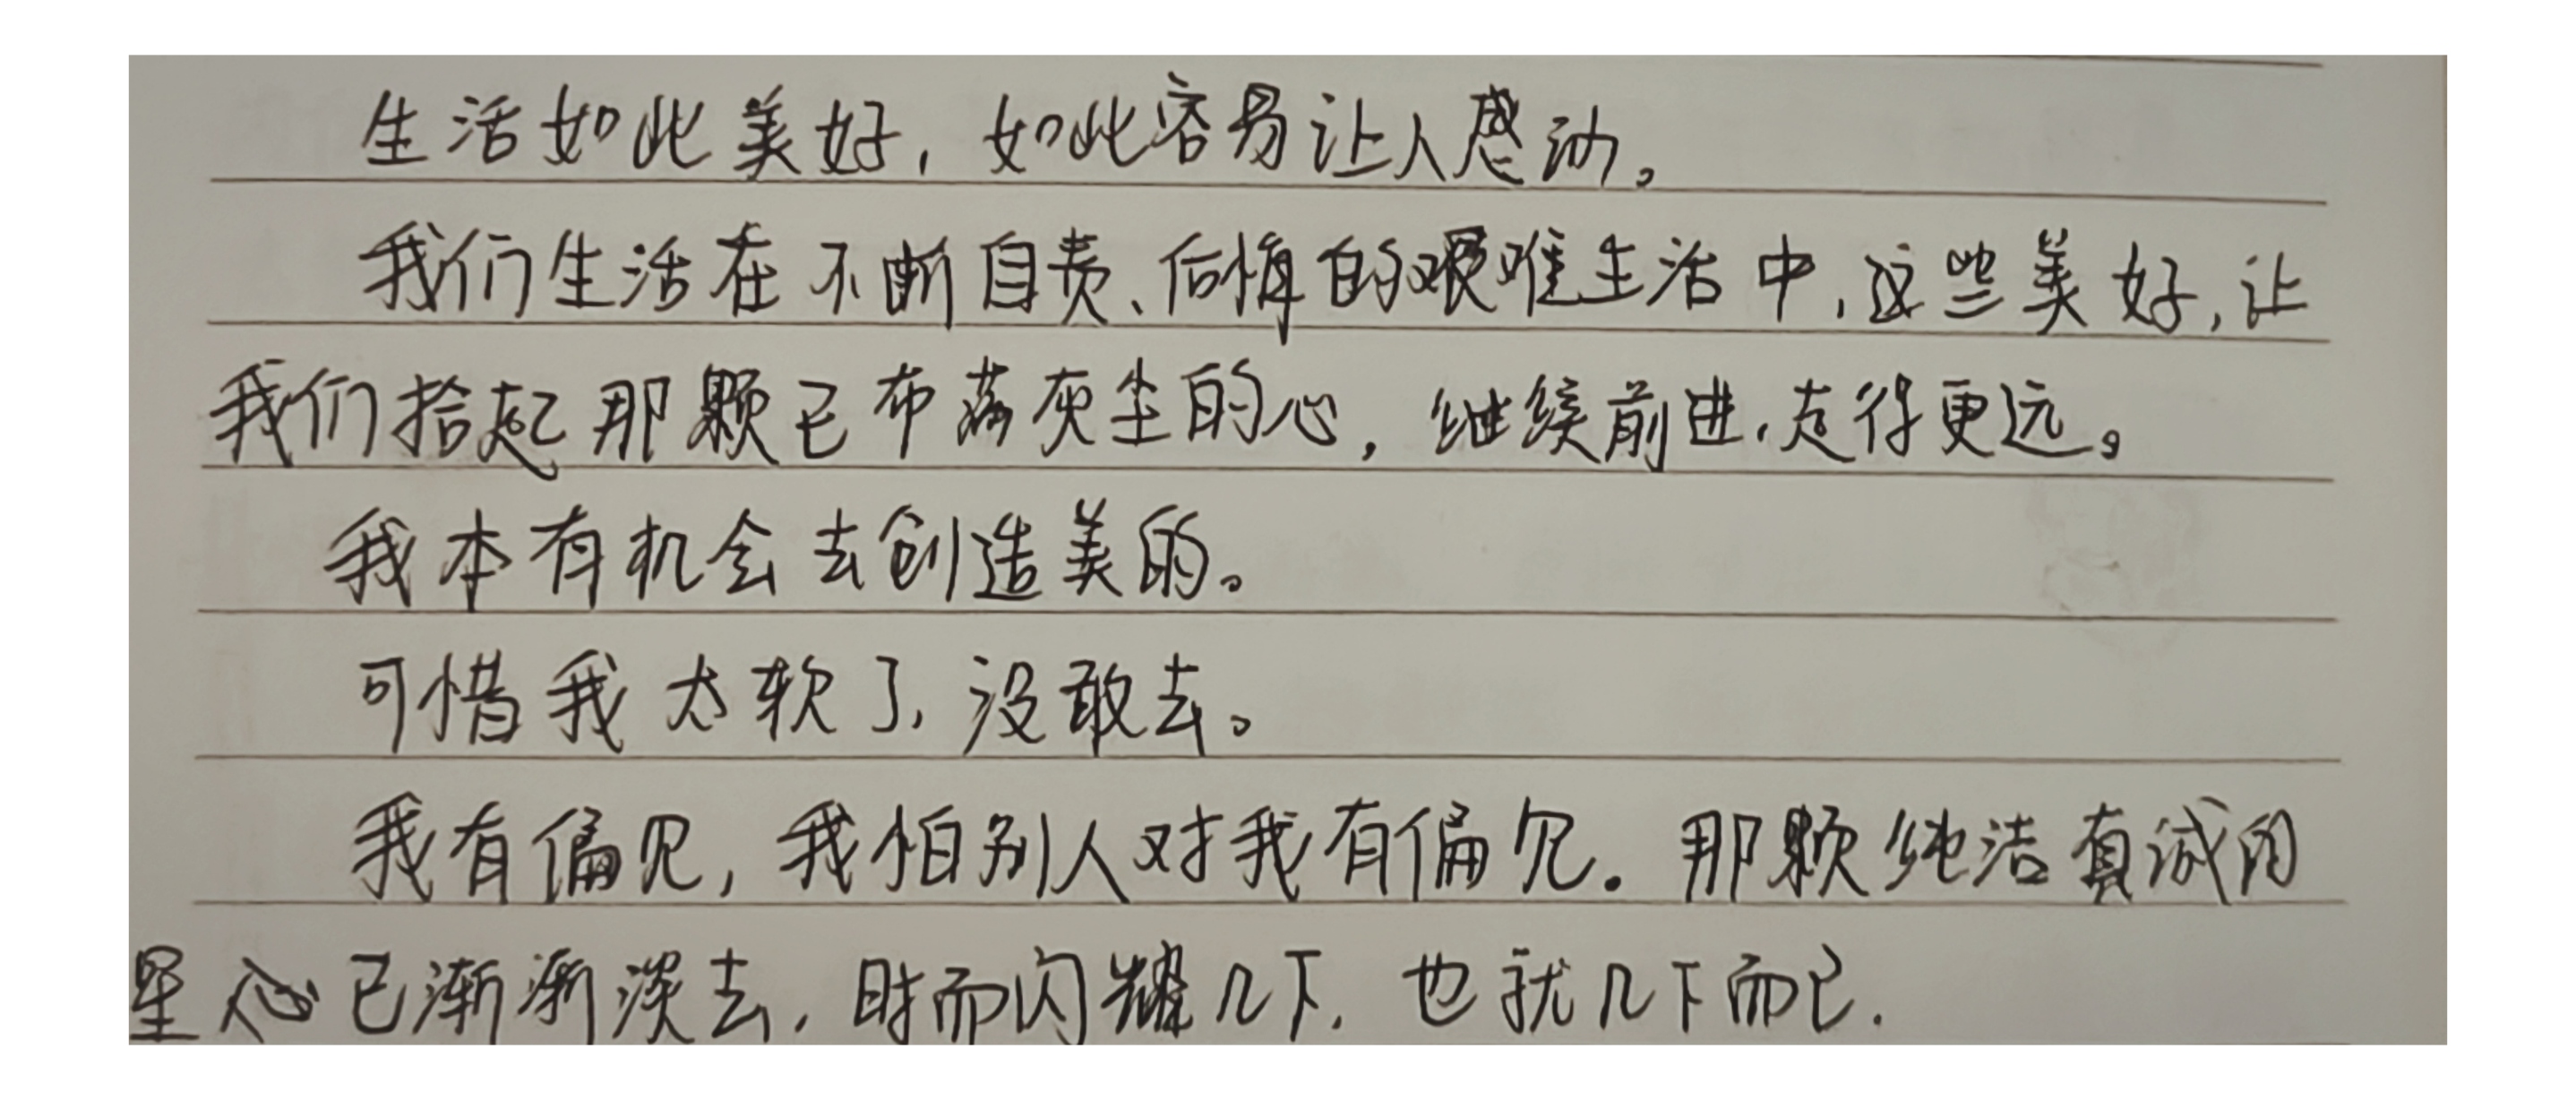 生活如此美好，如此容易让人感动。
我们生活在不断自责、后悔的艰难生活中，这些美好，让
我们拾起那颗已布落灰尘的心，继续前进，走得更远。
我本有机会去创造美的。
可惜我太软了，没敢去。
我有偏见，我怕别人对我有偏见。那颗纯洁真诚的
星心已渐渐淡去，时而闪耀几下，也就几下而已.